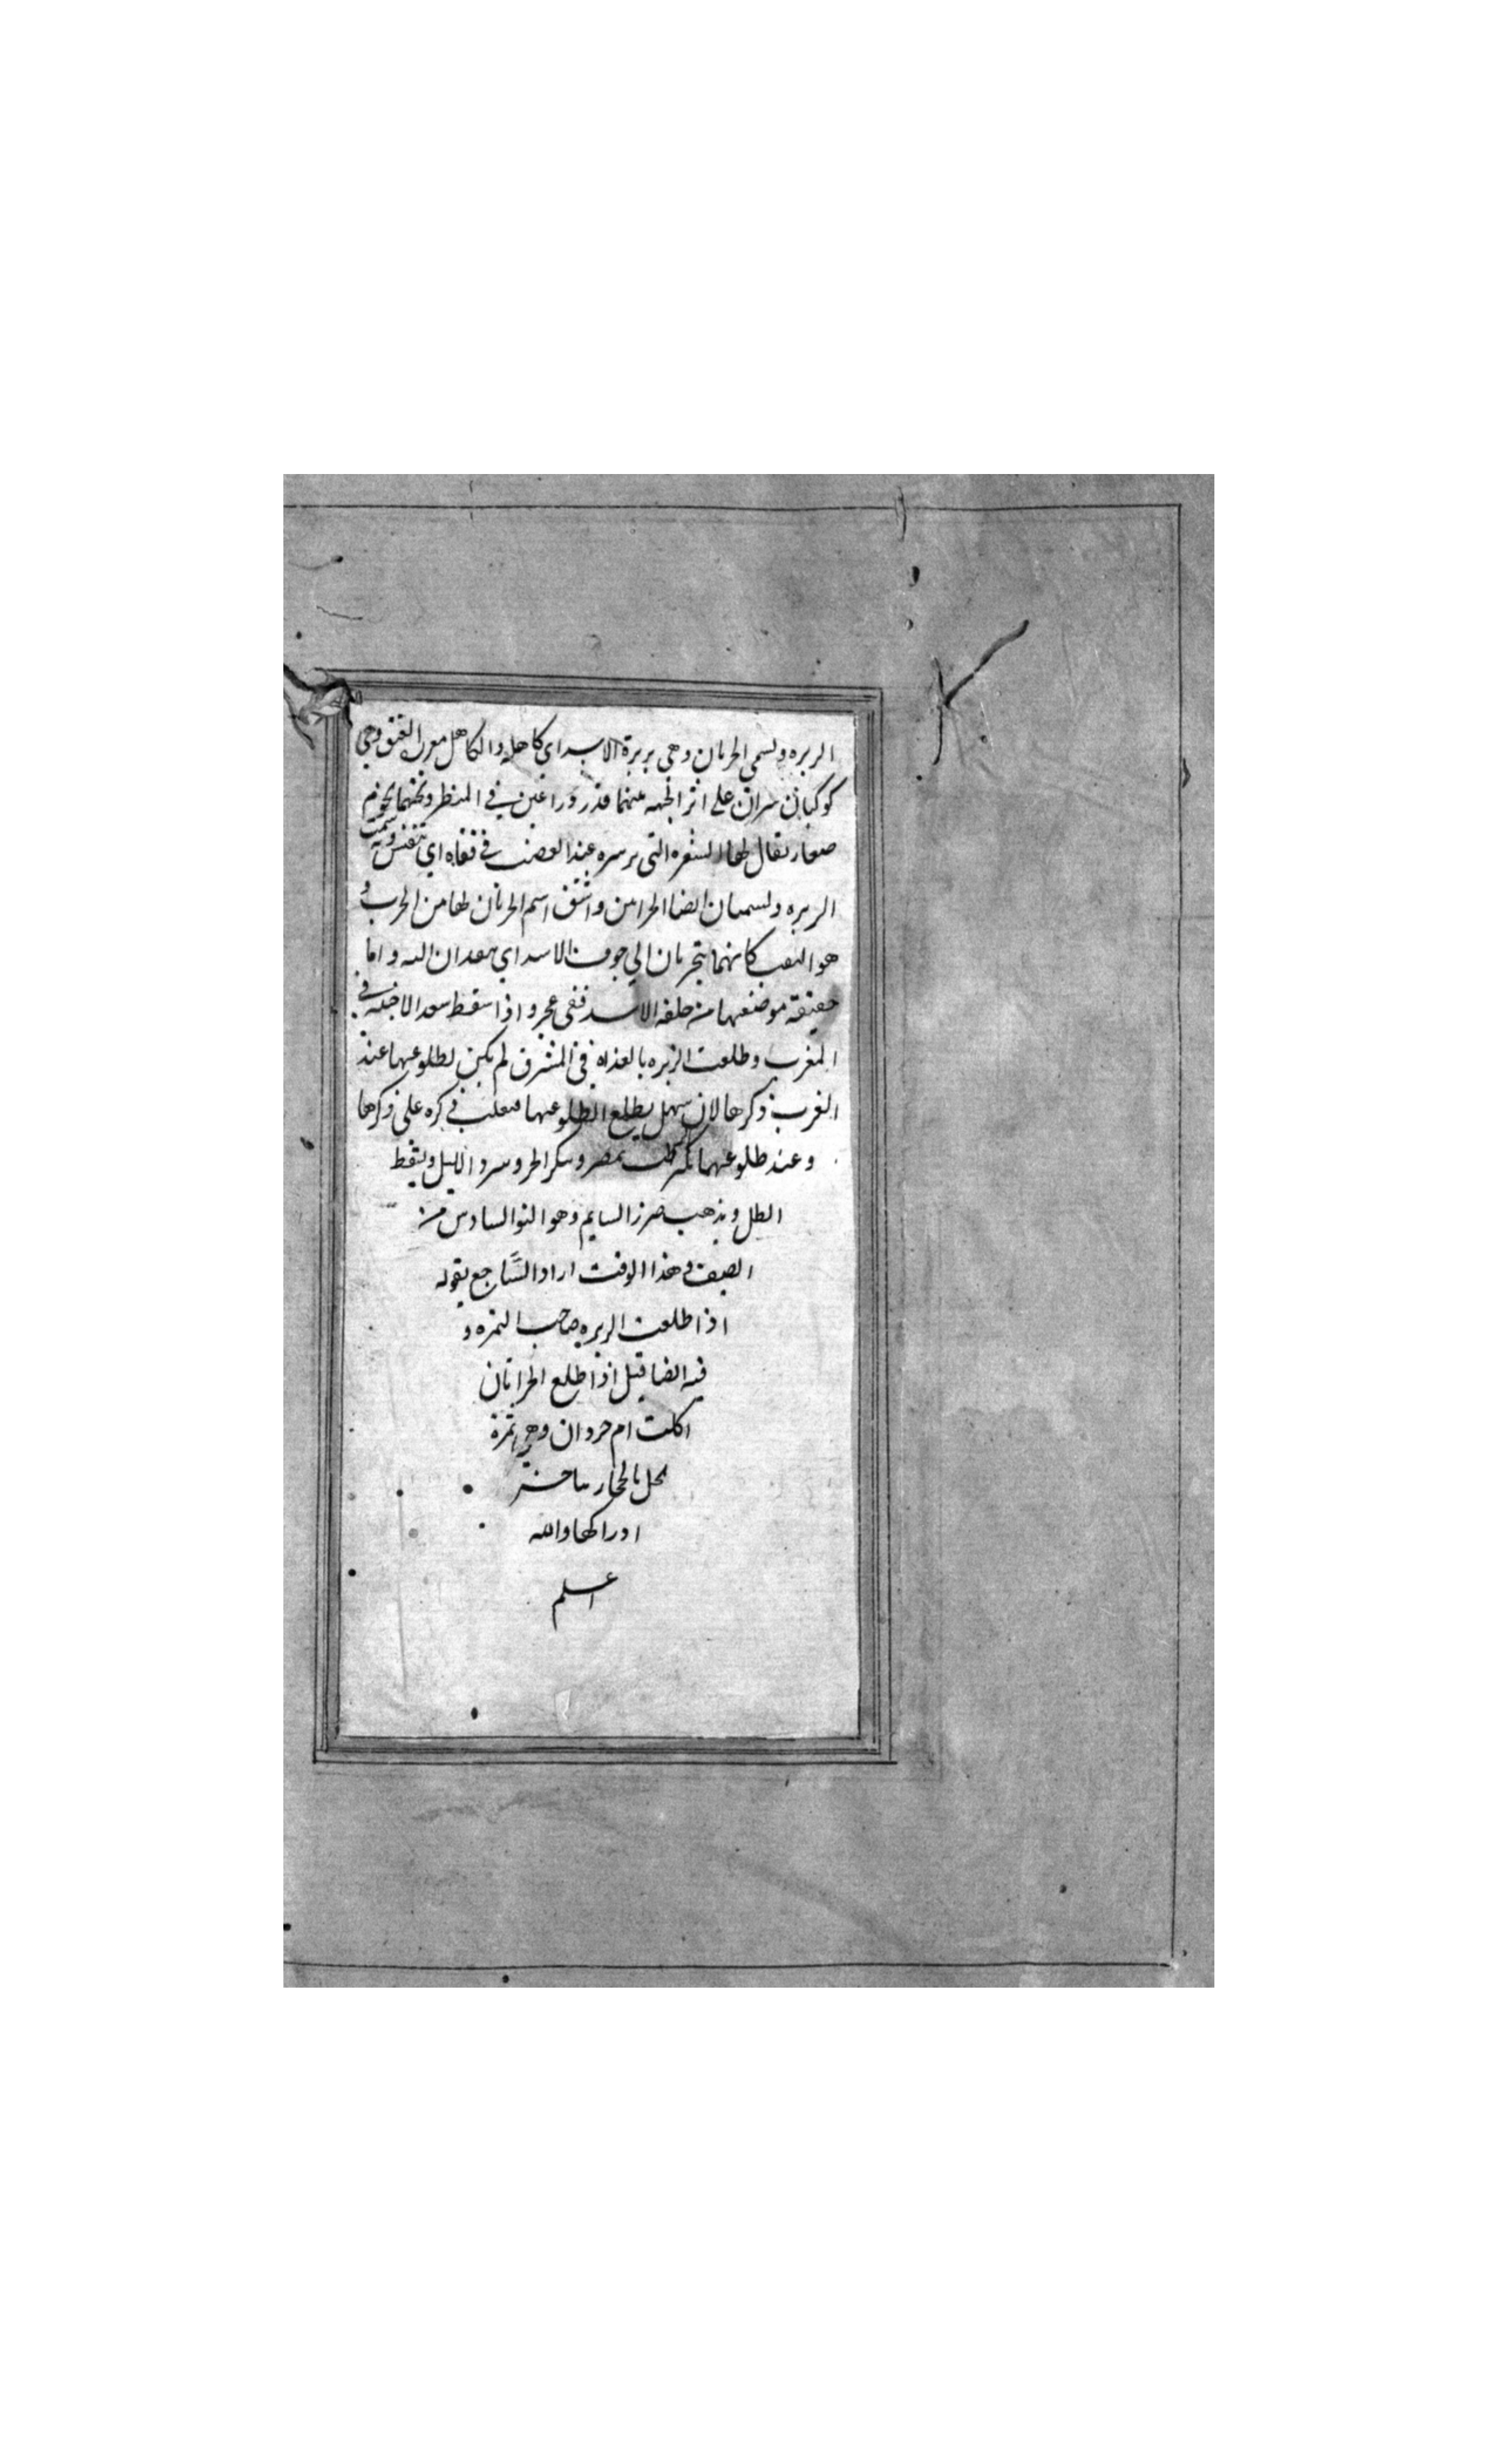 الزبره وتسمى الخراتان وهى زبرة الاسد اي كاهله والكاهل مغرز العنق وهي
كوكبان نيران على اثر الجبهه بينهما قدر ذراعين في المنظر وتحتهما نجوم
صغار يقال لها الشعره التى عند الغضب في قفاه اي تنتفش وبه سميت
الزبره وتسميان ايضا الخراتين واشتق اسم الخراتان لها من الخرت و
هو الثقب كانهما ينخرتان الي جوف الاسد اي ينفذان اليه و اما
حقيقة موضعهما من خلقه الاسد ففى عجزه و اذا سقط سعد الاخبيه في
المغرب وطلعت الزبره بالغداه في المشرق لم يكن لطلوعهما عند
العرب ذكرها لان سهيل يطلع لطلوعهما فيغلب ذكره على ذكرها
وعند طلوعهما بمصر وينكسر الحر ويبرد الليل ويسقط
الطل ويذهب السمايم وهو النو السادس من
الصيف وهذا الوقت اراد السَّاجع بقوله
اذا طلعت الزبره صاحب التمره و
فيه ايضا قيل اذا طلع الخراتان
اكلت ام جردان وهي تمرة
نخل بالحجاز يتاخر
ادراكها والله
اعلم